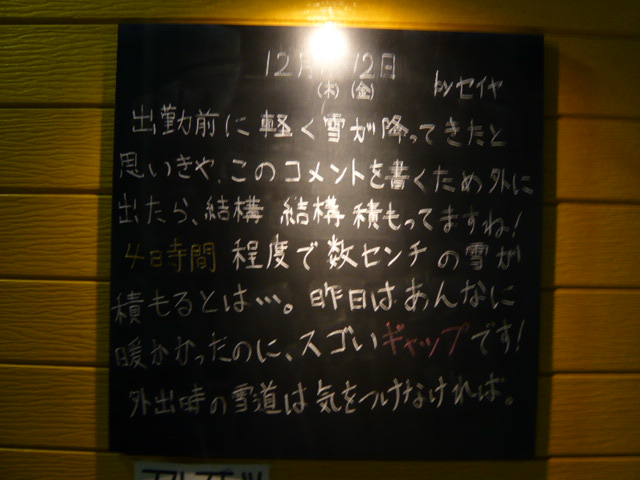 12月 12日
(木)(金) byセイヤ
出勤前に軽く雪が降ってきたと
思いきや、このコメントを書くため外に
出たら、結構 結構 積もってますね!
4時間 程度で数センチの雪が
積もるとは…。昨日はあんなに
暖かかったのに、スゴいギャップです!
外出時の雪道は気をつけなければ。